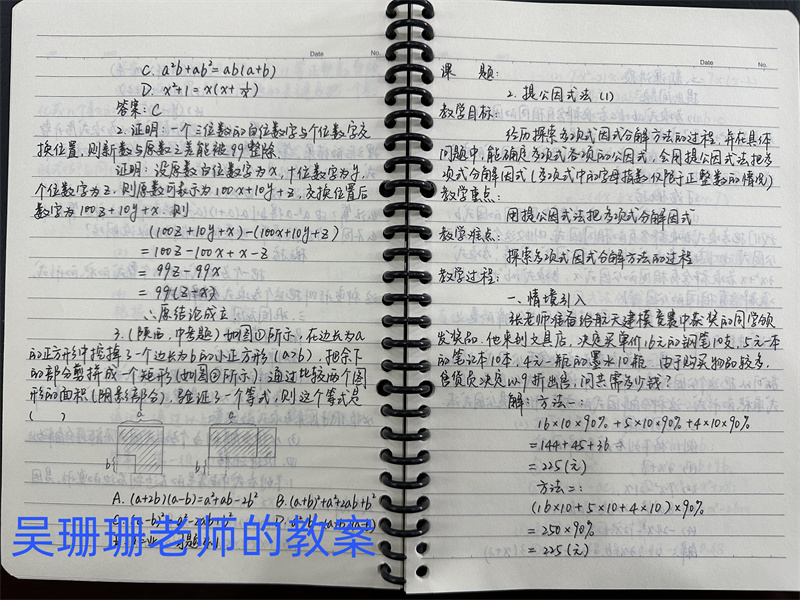 Date No.
C. a²b+ab²=ab(a+b)
D. x²+1=x(x+1/x)
答案:C
2. 证明:一个三位数的百位数字与个位数字交
换位置,则新数与原数之差能被99整除
证明:设原数百位数字为x,十位数字为y,
个位数字为z,则原数可表示为100x+10y+z,交换位置后
数字为100z+10y+x 则
(100z+10y+x)-(100x+10y+z)
=100z-100x+x-z
=99z-99x
=99(z-x)
∴原结论成立
3.(陕西,中考题)如图①所示,在边长为a
的正方形中挖掉了一个边长为b的小正方形(a>b),把余下
的部分剪拼成一个矩形(如图②所示),通过比较两个图
形的面积(阴影部分),验证了一个等式,则这个等式是
( )
a
b
b
A. (a+2b)(a-b)=a²+ab-2b² B. (a+b)²+a²+2ab+b²
吴珊珊老师的教案
Date No.
课 题:
2. 提公因式法(1)
教学目标:
经历探索多项式因式分解方法的过程,并在具体
问题中,能确定多项式各项的公因式,会用提公因式法把多
项式分解因式(多项式中的字母指数仅限于正整数的情况)
教学重点:
用提公因式法把多项式分解因式
教学难点:
探索多项式因式分解方法的过程
教学过程:
一、情境引入
张老师准备给航天建模竞赛中获奖的同学颁
发奖品,他来到文具店,决定买单价16元的钢笔10支,5元一本
的笔记本10本,4元一瓶的墨水10瓶,由于购买物品较多,
售货员决定以9折出售,问共需多少钱?
解:方法一:
16×10×90%+5×10×90%+4×10×90%
=144+45+36
=225(元)
方法二:
(16×10+5×10+4×10)×90%
=250×90%
=225(元)